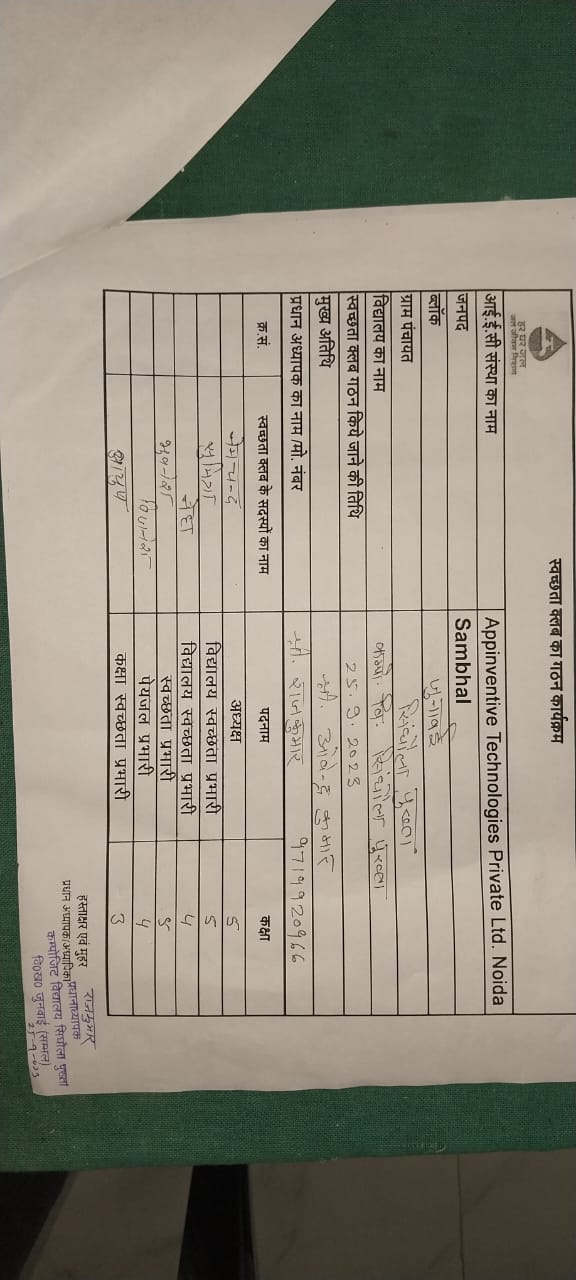 हर घर जल
जल जीवन मिशन
स्वच्छता क्लब का गठन कार्यक्रम
आई.ई.सी संस्था का नाम Appinventive Technologies Private Ltd. Noida
जनपद Sambhal
ब्लॉक जुनावई
ग्राम पंचायत सिंघौला पुख्ता
विद्यालय का नाम कम्पो. वि. सिंघौला पुख्ता
स्वच्छता क्लब गठन किये जाने की तिथि 25.9.2023
मुख्य अतिथि श्री. कुमार
प्रधान अध्यापक का नाम /मो. नंबर श्री. राजकुमार
क्र.सं. स्वच्छता क्लब के सदस्यों का नाम पदनाम कक्षा
नेमचन्द अध्यक्ष 5
सुमित विद्यालय स्वच्छता प्रभारी 5
नेहा विद्यालय स्वच्छता प्रभारी 4
भुवनेश स्वच्छता प्रभारी
विमलेश पेयजल प्रभारी 4
आयुष कक्षा स्वच्छता प्रभारी 3
हस्ताक्षर एवं मुहर राजकुमार
प्रधान अध्यापक/अध्यापिका प्रधानाध्यापक
कम्पोजिट विद्यालय सिंघौला पुख्ता
वि०ख० जुनावई (सम्भल)